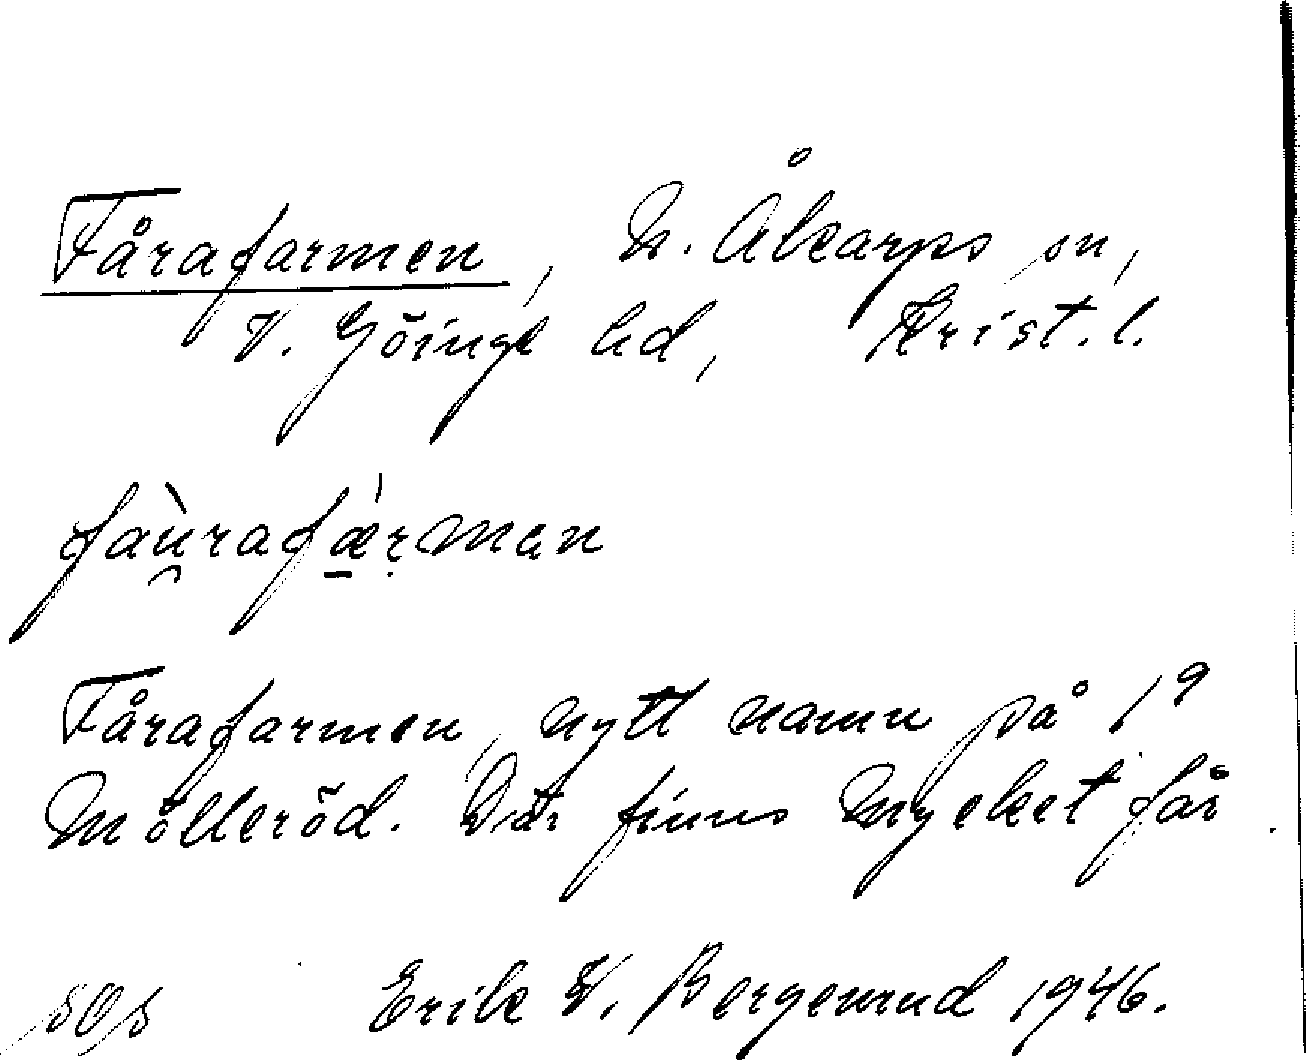 Fårafarmen, N. Åkarps sn,
V. Göinge hd, Krist. l.
fàu̯rafæ̱̀ṛman
Fårafarmen, nytt namn på 1⁹
Mölleröd. Där finns mycket får.
Erik W. Bergenrud 1946.